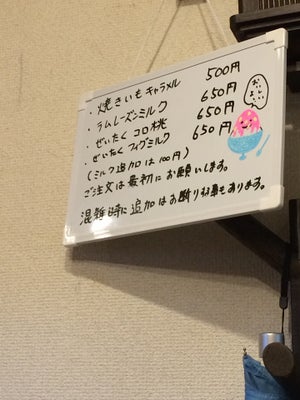 ・焼きいもキャラメル 500円
・ラムレーズンミルク 650円
・ぜいたくコロ桃 650円
・ぜいたくフィグミルク 650円
(ミルク追加は100円)
ご注文は最初にお願いします。
混雑時に追加はお断り行事もあります。
おいしいよ